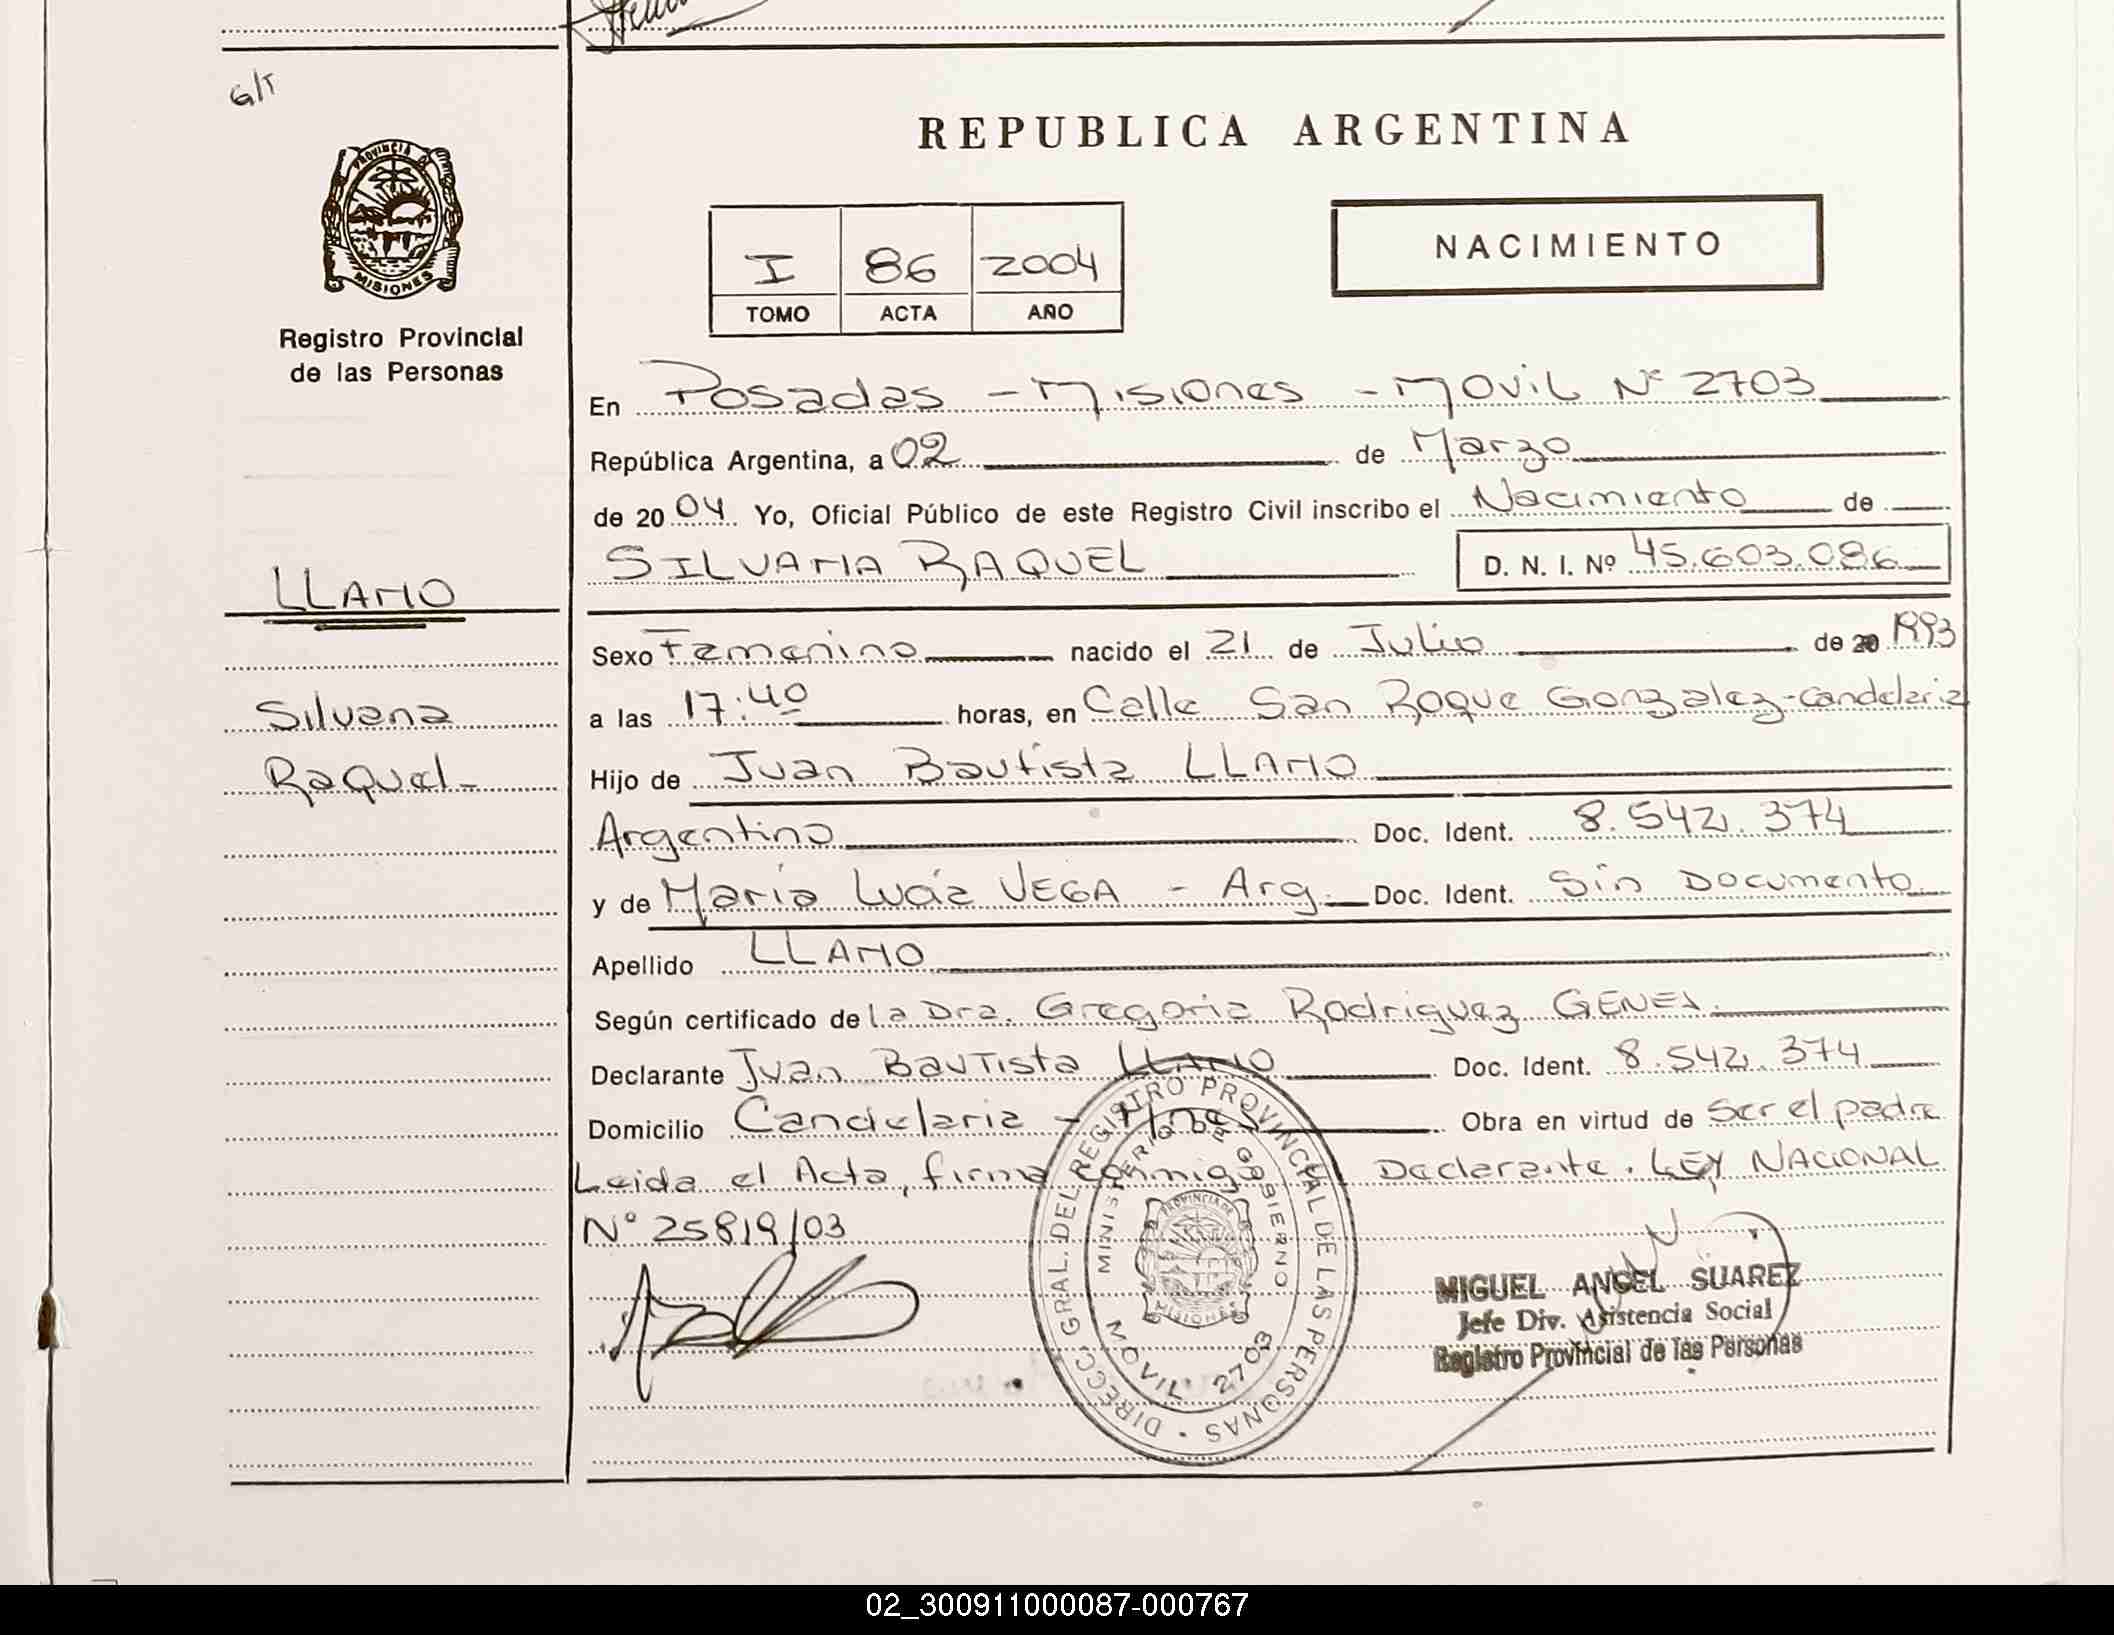 G/T
PROVINCIA DE
MISIONES
Registro Provincial
de las Personas
LLANO
Silvana
Raquel-
REPUBLICA ARGENTINA
I 86 2004
TOMO ACTA AÑO
NACIMIENTO
En Posadas - Misiones - Movil N° 2703
República Argentina, a 02 de Marzo
de 2004 Yo, Oficial Público de este Registro Civil inscribo el Nacimiento de
SILVANA RAQUEL D. N. I. Nº 45.603.086
Sexo Femenino nacido el 21 de Julio de 20 1993
a las 17:40 horas, en Calle San Roque Gonzalez-Candelaria
Hijo de Juan Bautista LLANO
Argentino Doc. Ident. 8.542.374
y de María Lucía VEGA - Arg. Doc. Ident. Sin Documento
Apellido LLANO
Según certificado de la Dra. Gregoria Rodriguez GENES.
Declarante Juan Bautista LLANO Doc. Ident. 8.542.374
Domicilio Candelaria - Mnes Obra en virtud de ser el padre
Leida el Acta, firma conmigo Declarante. LEY NACIONAL
N° 25819/03
DIRECC. GRAL. DEL REGISTRO PROVINCIAL DE LAS PERSONAS
MINISTERIO DE GOBIERNO
PROVINCIA DE
MISIONES
MOVIL 2703
MIGUEL ANGEL SUAREZ
Jefe Div. Asistencia Social
Registro Provincial de las Personas
02_300911000087-000767